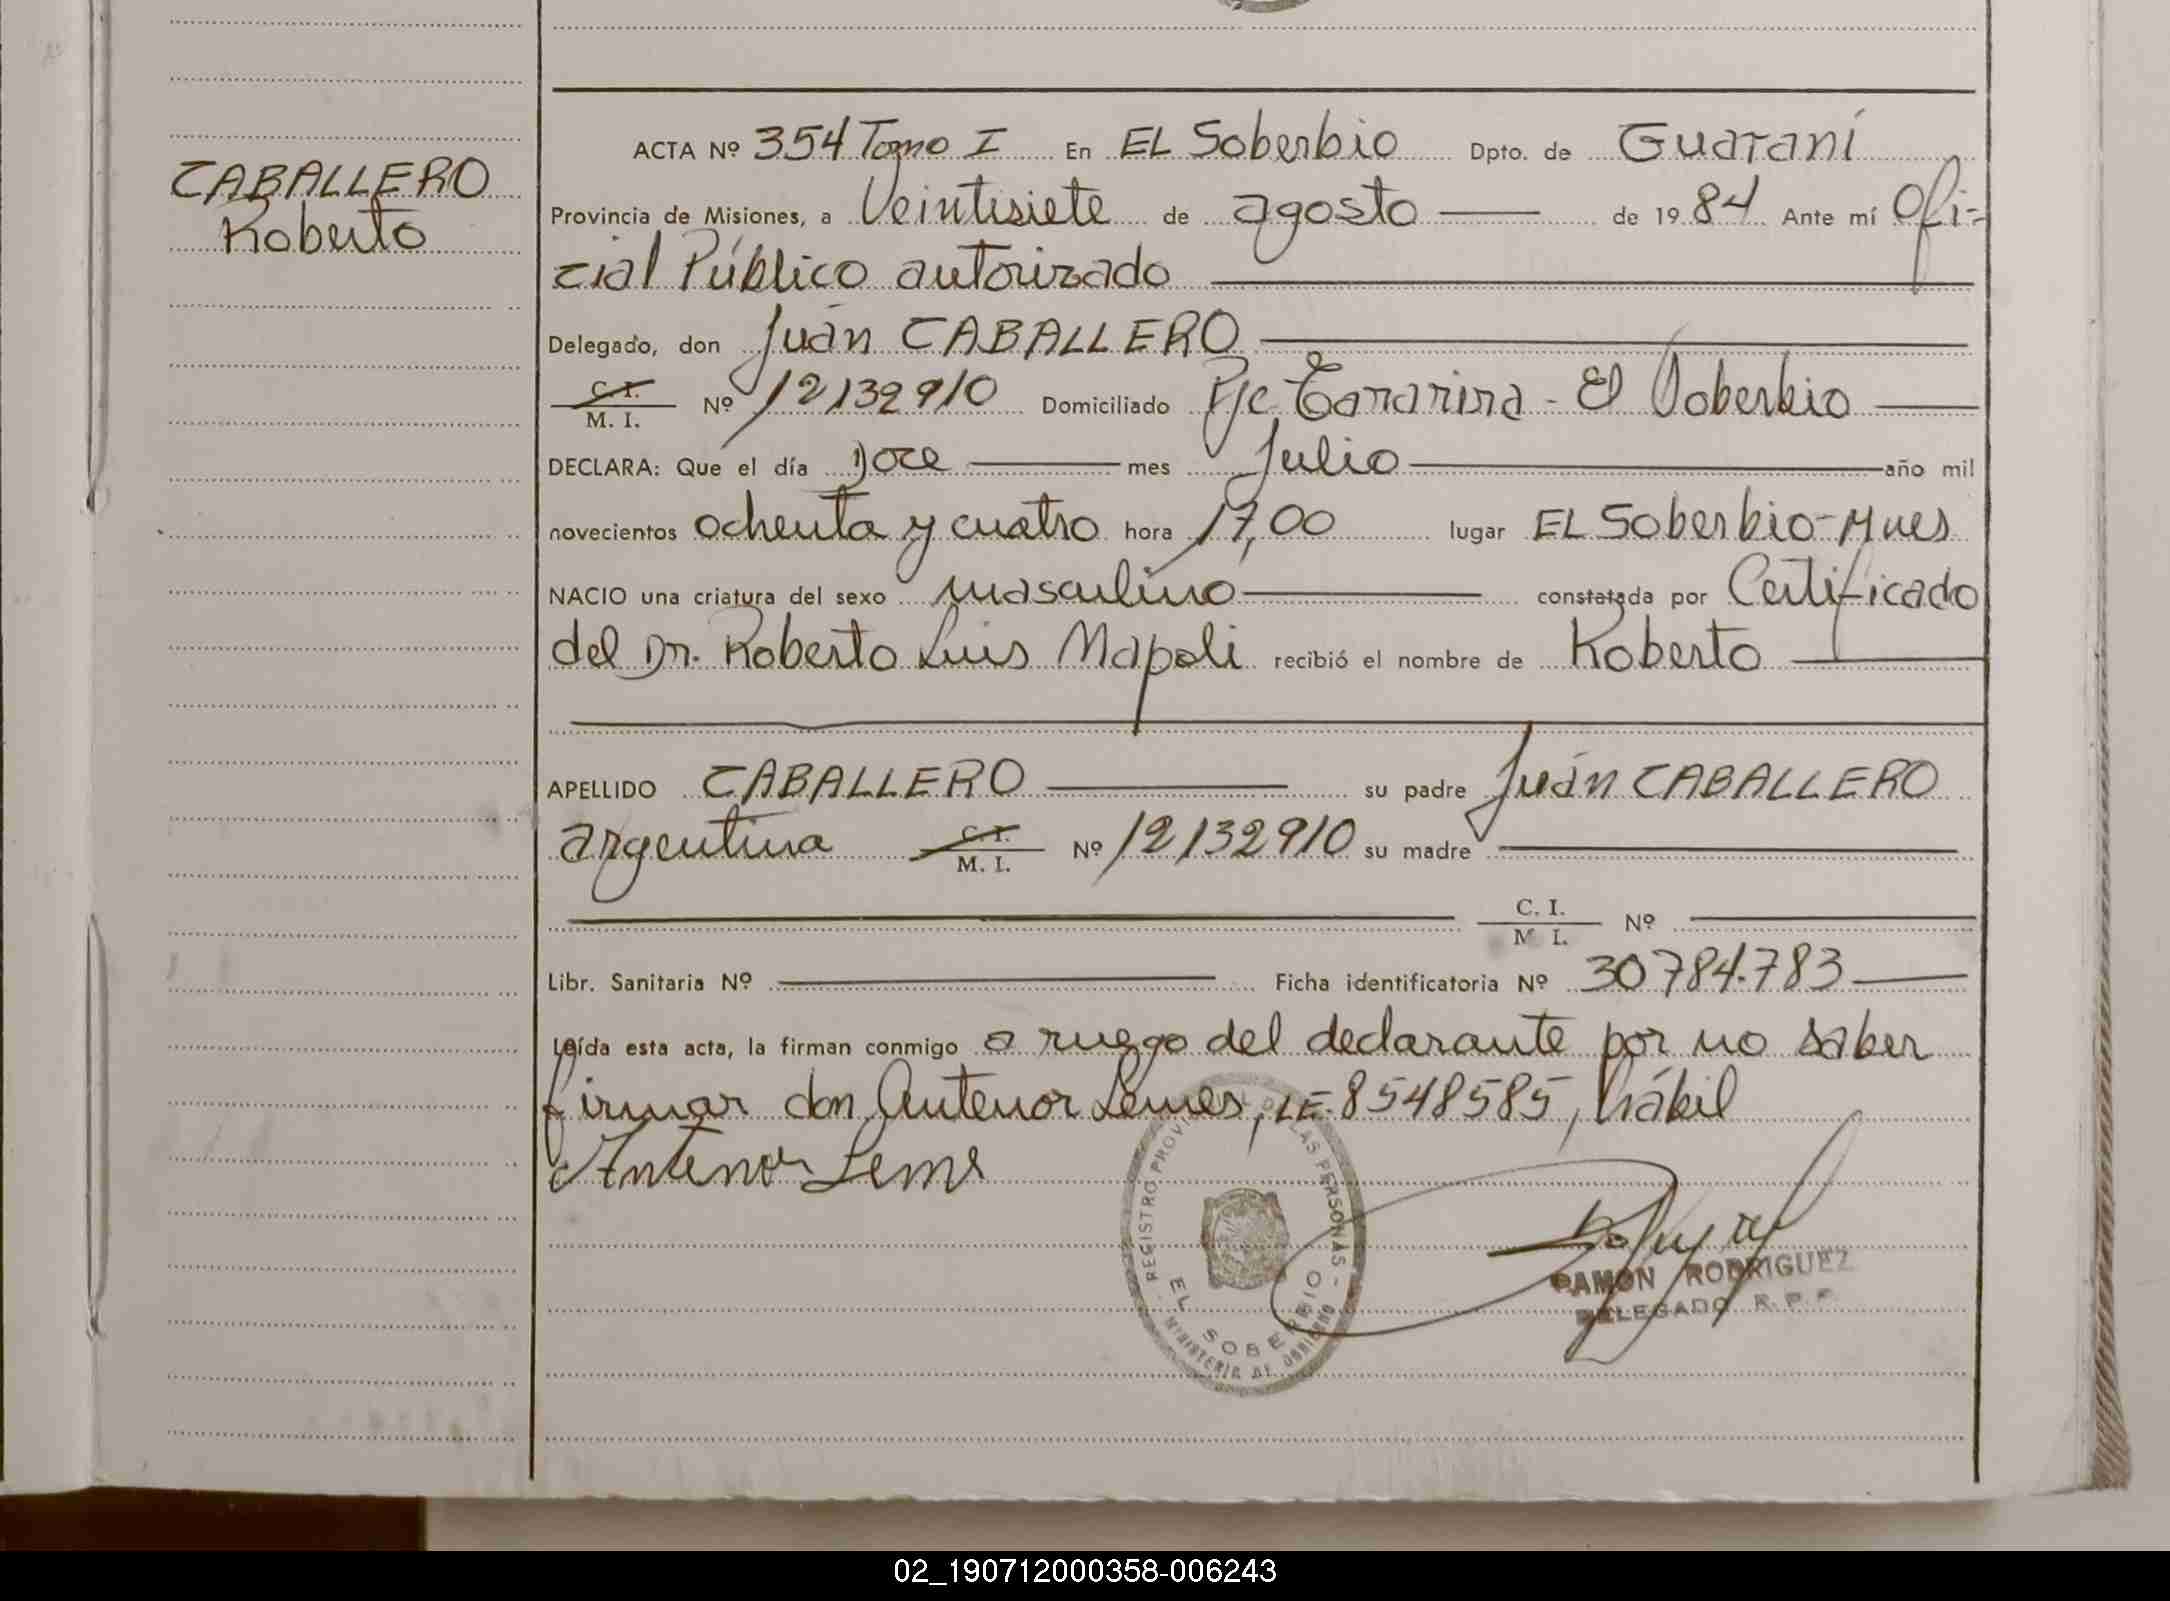 CABALLERO
Roberto
ACTA Nº 354 Tomo I En EL Soberbio Dpto. de Guaraní
Provincia de Misiones, a Veintisiete de agosto de 1984 Ante mí Ofi-
cial Público autorizado
Delegado, don Juán CABALLERO
C. I.
M. I. Nº 12132910 Domiciliado Pje Tararira - El Soberbio
DECLARA: Que el día Doce mes Julio año mil
novecientos ochenta y cuatro hora 17,00 lugar EL Soberbio-Mnes
NACIO una criatura del sexo masculino constatada por Certificado
del Dr. Roberto Luis Napoli recibió el nombre de Roberto
APELLIDO CABALLERO su padre Juán CABALLERO
argentina C. I. M. I. Nº 12132910 su madre
C. I. M. I. Nº
Libr. Sanitaria Nº Ficha identificatoria Nº 30784.783
Leída esta acta, la firman conmigo a ruego del declarante por no saber
firmar don Antenor Lemes, LE. 8548585, hábil
Antenor Leme
REGISTRO PROVINCIAL DE LAS PERSONAS -
EL SOBERBIO
MINISTERIO DE GOBIERNO
RAMON RODRIGUEZ
DELEGADO R. P. P.
02_190712000358-006243